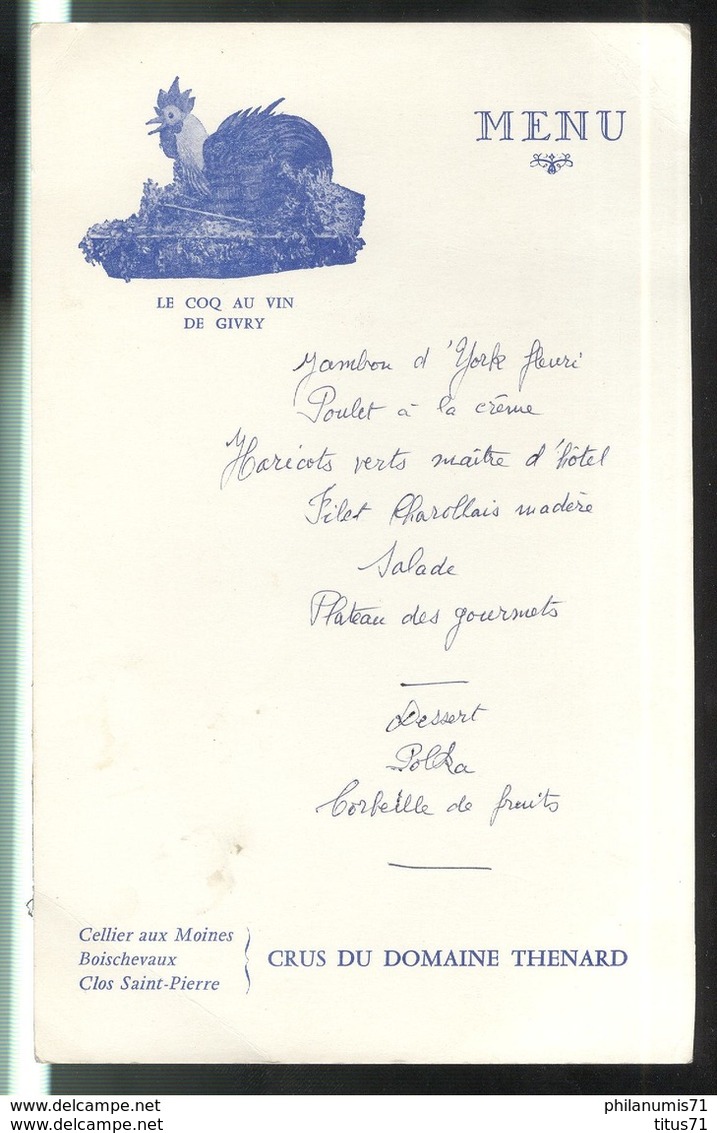 MENU
LE COQ AU VIN
DE GIVRY
Jambon d'York fleuri
Poulet à la crême
Haricots verts maître d'hôtel
Filet Charollais madère
Salade
Plateau des gourmets
Dessert
Polka
Corbeille de fruits
Cellier aux Moines
Boischevaux
Clos Saint-Pierre
CRUS DU DOMAINE THENARD
www.delcampe.net
philanumis71
www.delcampe.net
titus71